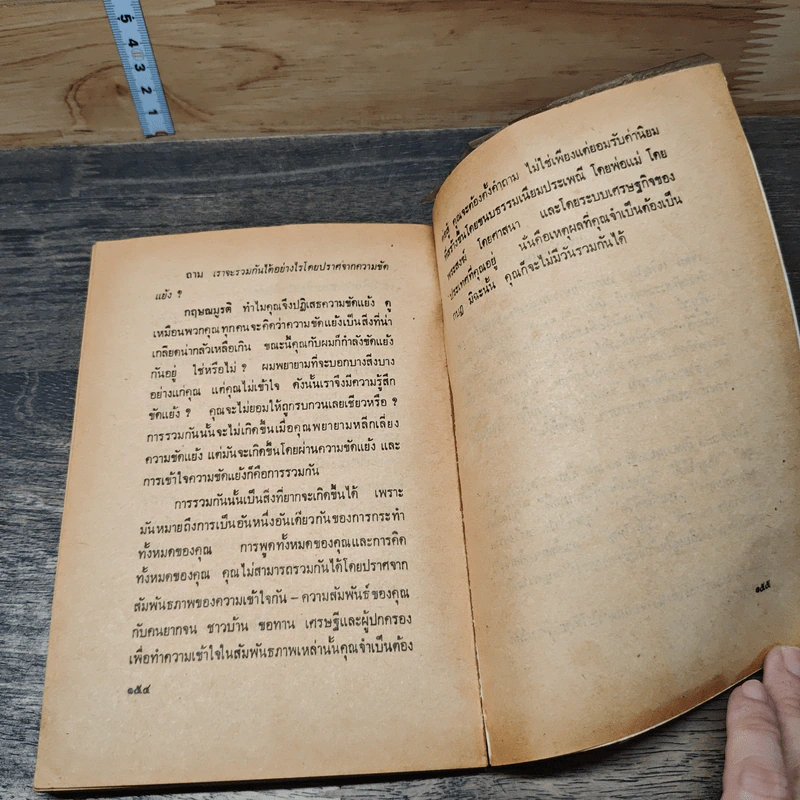 ถาม เราจะรวมกันได้อย่างไรโดยปราศจากความขัด
แย้ง ?
กฤษณมูรติ ทำไมคุณจึงปฏิเสธความขัดแย้ง ดู
เหมือนพวกคุณทุกคนจะคิดว่าความขัดแย้งเป็นสิ่งที่น่า
เกลียดน่ากลัวเหลือเกิน ขณะนี้คุณกับผมก็กำลังขัดแย้ง
กันอยู่ ใช่หรือไม่ ? ผมพยายามที่จะบอกบางสิ่งบาง
อย่างแก่คุณ แต่คุณไม่เข้าใจ ดังนั้นเราจึงมีความรู้สึก
ขัดแย้ง ? คุณจะไม่ยอมให้ถูกรบกวนเลยเชียวหรือ ?
การรวมกันนั้นจะไม่เกิดขึ้นเมื่อคุณพยายามหลีกเลี่ยง
ความขัดแย้ง แต่มันจะเกิดขึ้นโดยผ่านความขัดแย้ง และ
การเข้าใจความขัดแย้งก็คือการรวมกัน
การรวมกันนั้นเป็นสิ่งที่ยากจะเกิดขึ้นได้ เพราะ
มันหมายถึงการเป็นอันหนึ่งอันเดียวกันของการกระทำ
ทั้งหมดของคุณ การพูดทั้งหมดของคุณและการคิด
ทั้งหมดของคุณ คุณไม่สามารถรวมกันได้โดยปราศจาก
สัมพันธภาพของความเข้าใจกัน – ความสัมพันธ์ของคุณ
กับคนยากจน ชาวบ้าน ขอทาน เศรษฐีและผู้ปกครอง
เพื่อทำความเข้าใจในสัมพันธภาพเหล่านั้นคุณจำเป็นต้อง
๑๕๔
คุณจะต้องตั้งคำถาม ไม่ใช่เพียงแต่ยอมรับค่านิยม
ที่สร้างขึ้นโดยขนบธรรมเนียมประเพณี โดยพ่อแม่ โดย
พระสงฆ์ โดยศาสนา และโดยระบบเศรษฐกิจของ
ประเทศที่คุณอยู่ นั่นคือเหตุผลที่คุณจำเป็นต้องเป็น
กบฏ มิฉะนั้น คุณก็จะไม่มีวันรวมกันได้
๑๕๕
5 4 3 2 1